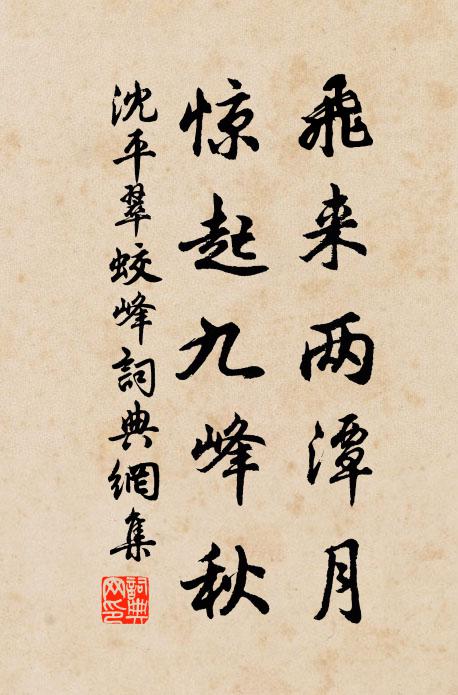 飛来两潭月
惊起九峰秋
沈平翠蛟峰詞典網集
詞典网印